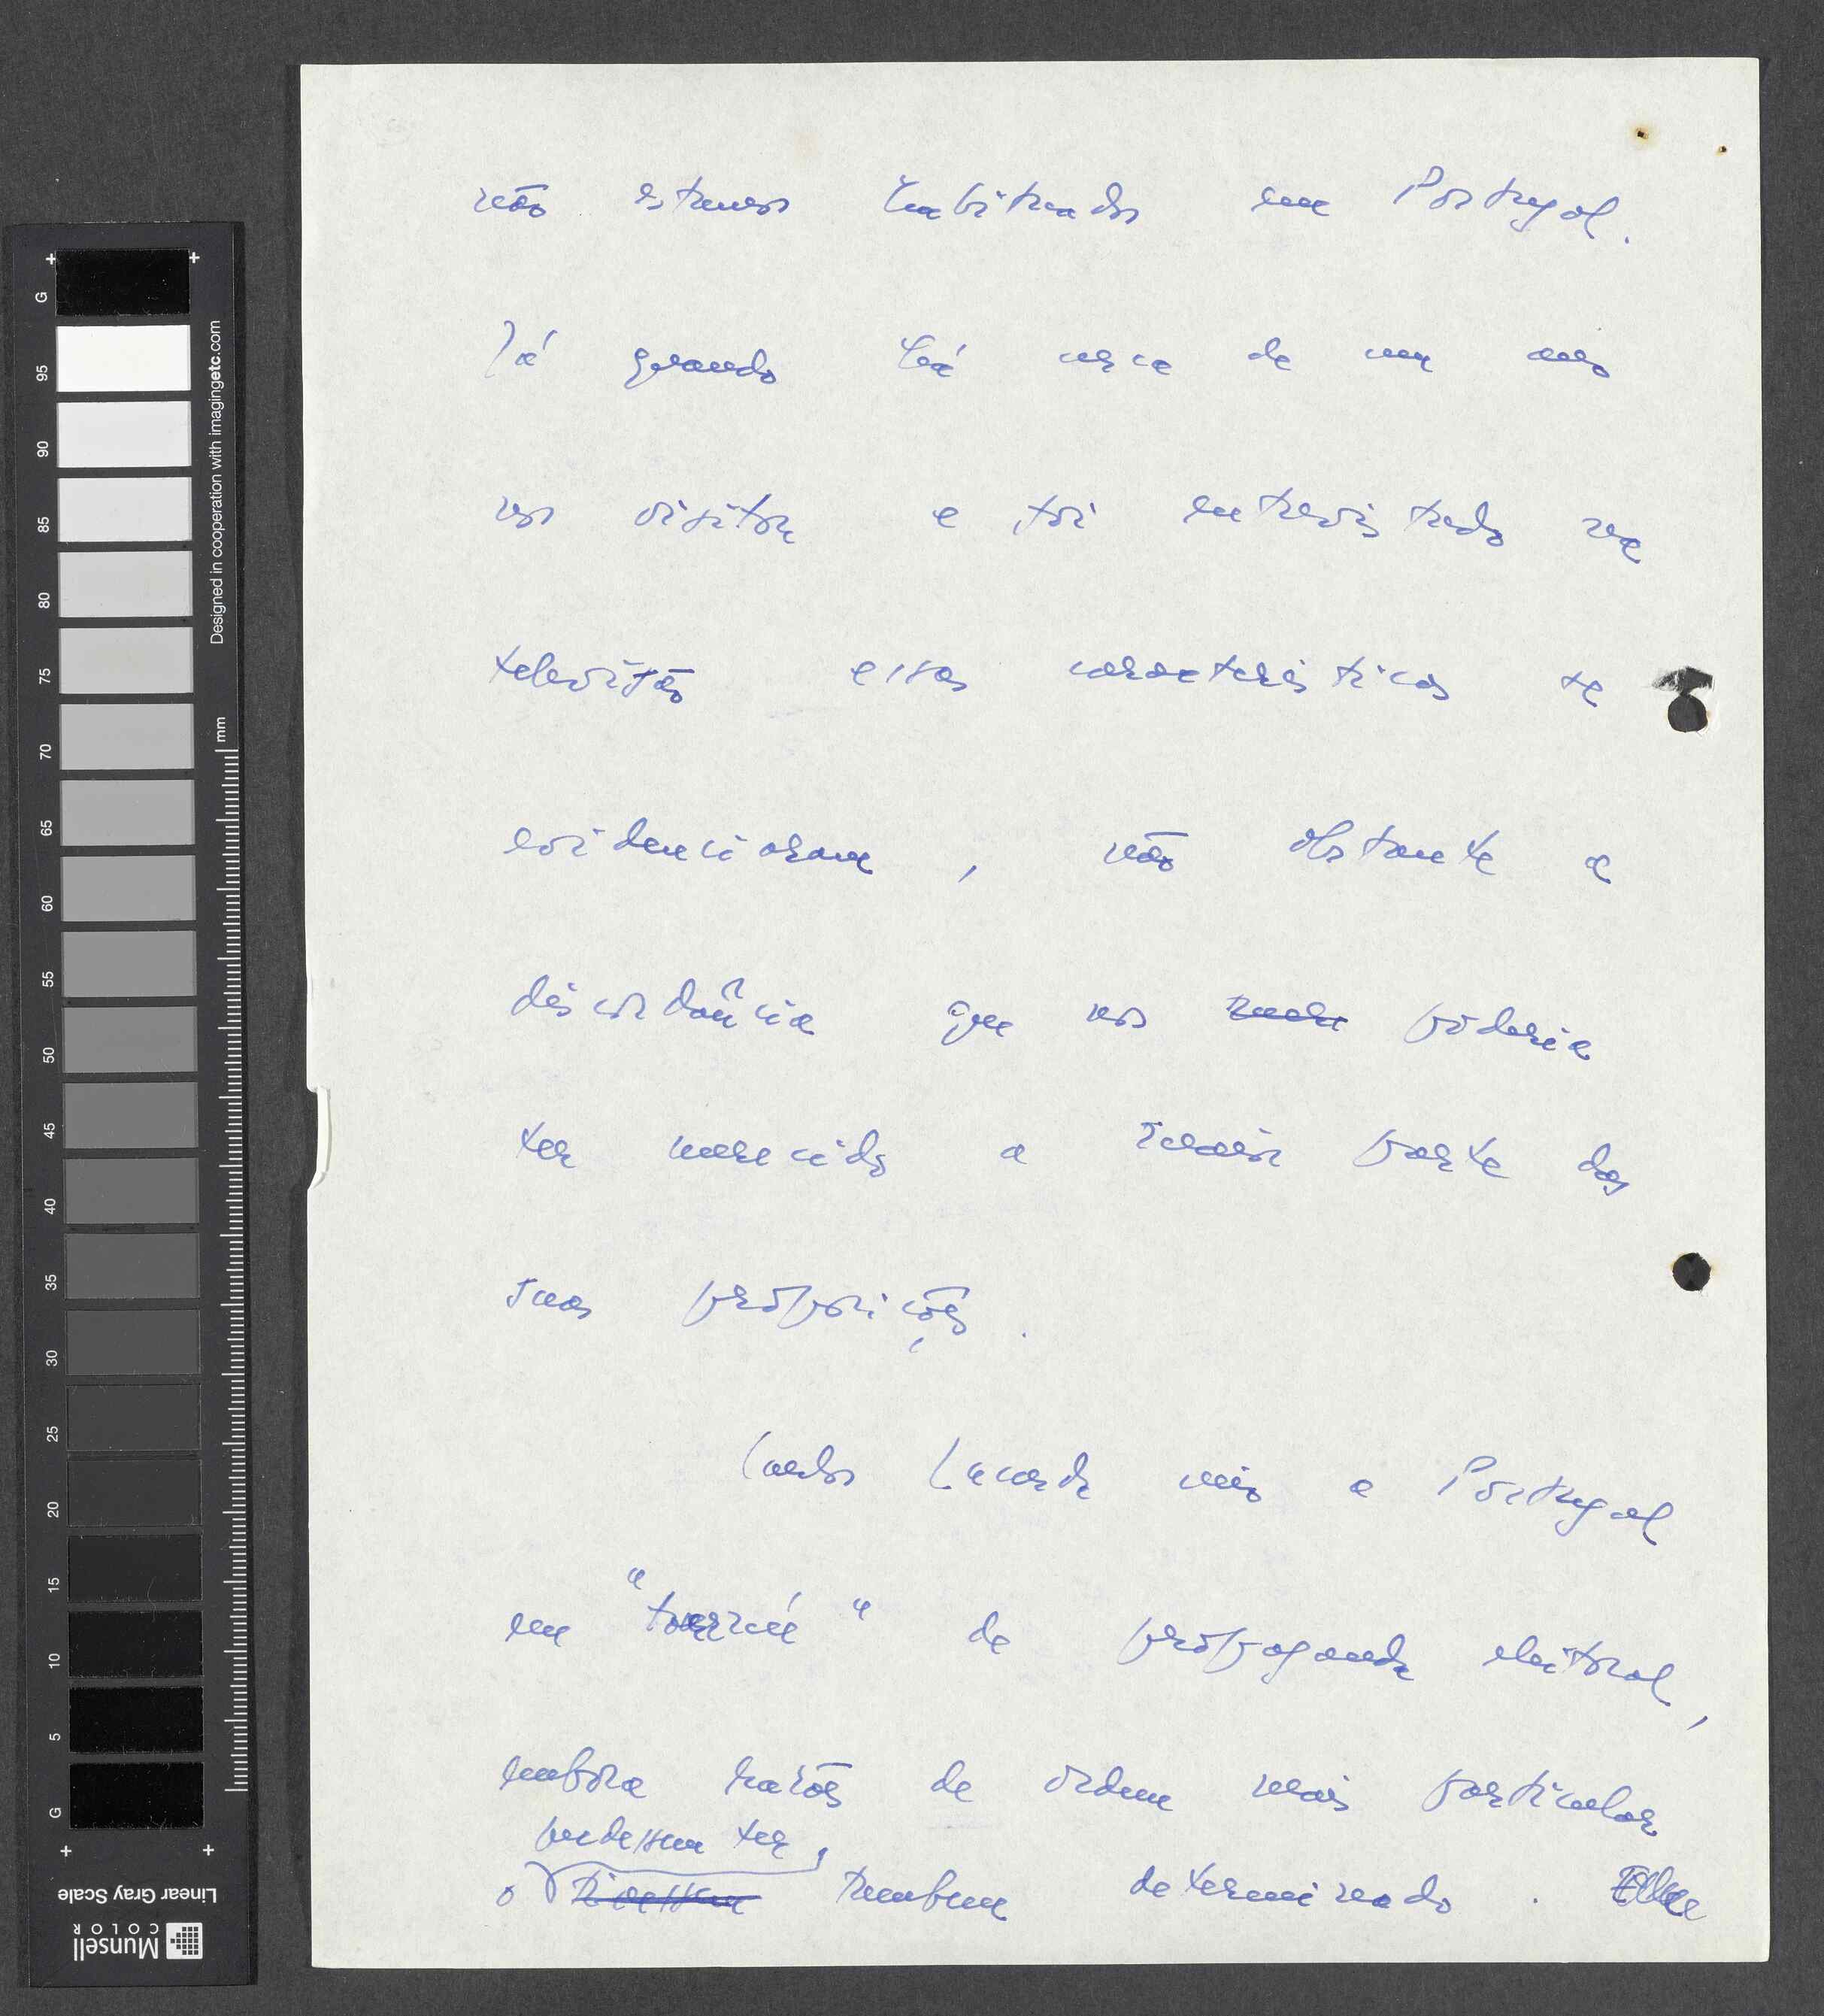 não estamos habituados em Portugal.
Já quando há cerca de um ano
nos visitou e foi entrevistado na
televisão essas características se
evidenciaram, não obstante a
discordância que nos poderia
ter merecido a maior parte das
suas proposições.
Carlos Lacerda veio a Portugal
em "tournée" de propaganda eleitoral,
embora razões de ordem mais particular
pudessem ter,
o tivessem também determinado.
G 95 90 85 80 75 70 65 60 55 50 45 40 35 30 25 20 15 10 5 G
Designed in cooperation with imagingetc.com
mm
Linear Gray Scale
Munsell
COLOR